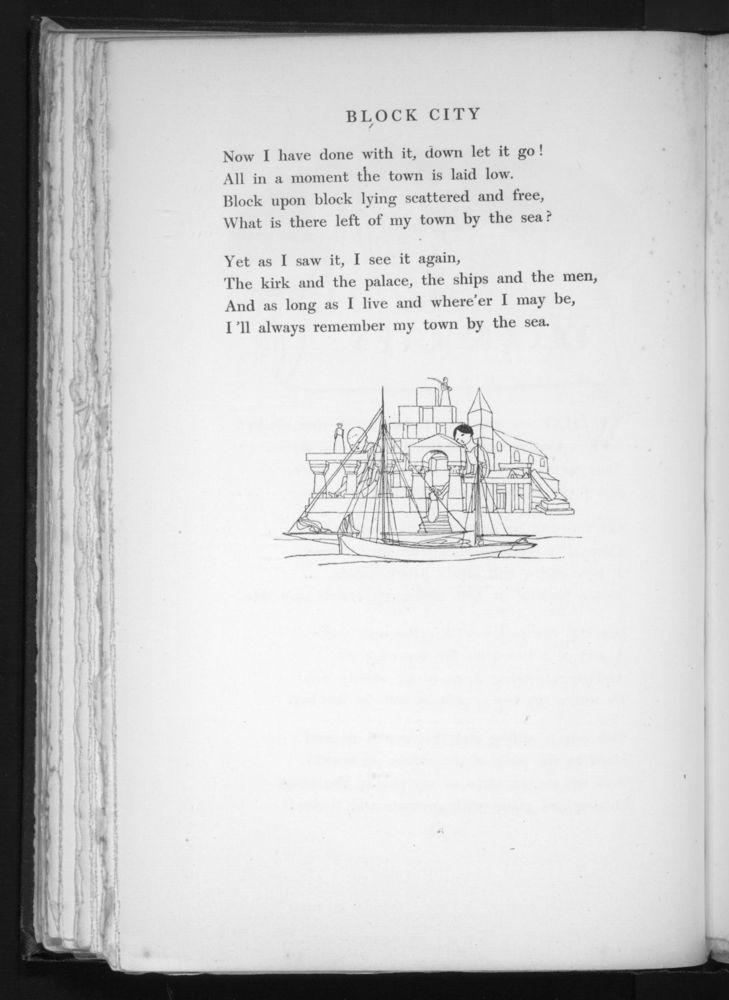 BLOCK CITY
Now I have done with it, down let it go!
All in a moment the town is laid low.
Block upon block lying scattered and free,
What is there left of my town by the sea?
Yet as I saw it, I see it again,
The kirk and the palace, the ships and the men,
And as long as I live and where'er I may be,
I'll always remember my town by the sea.